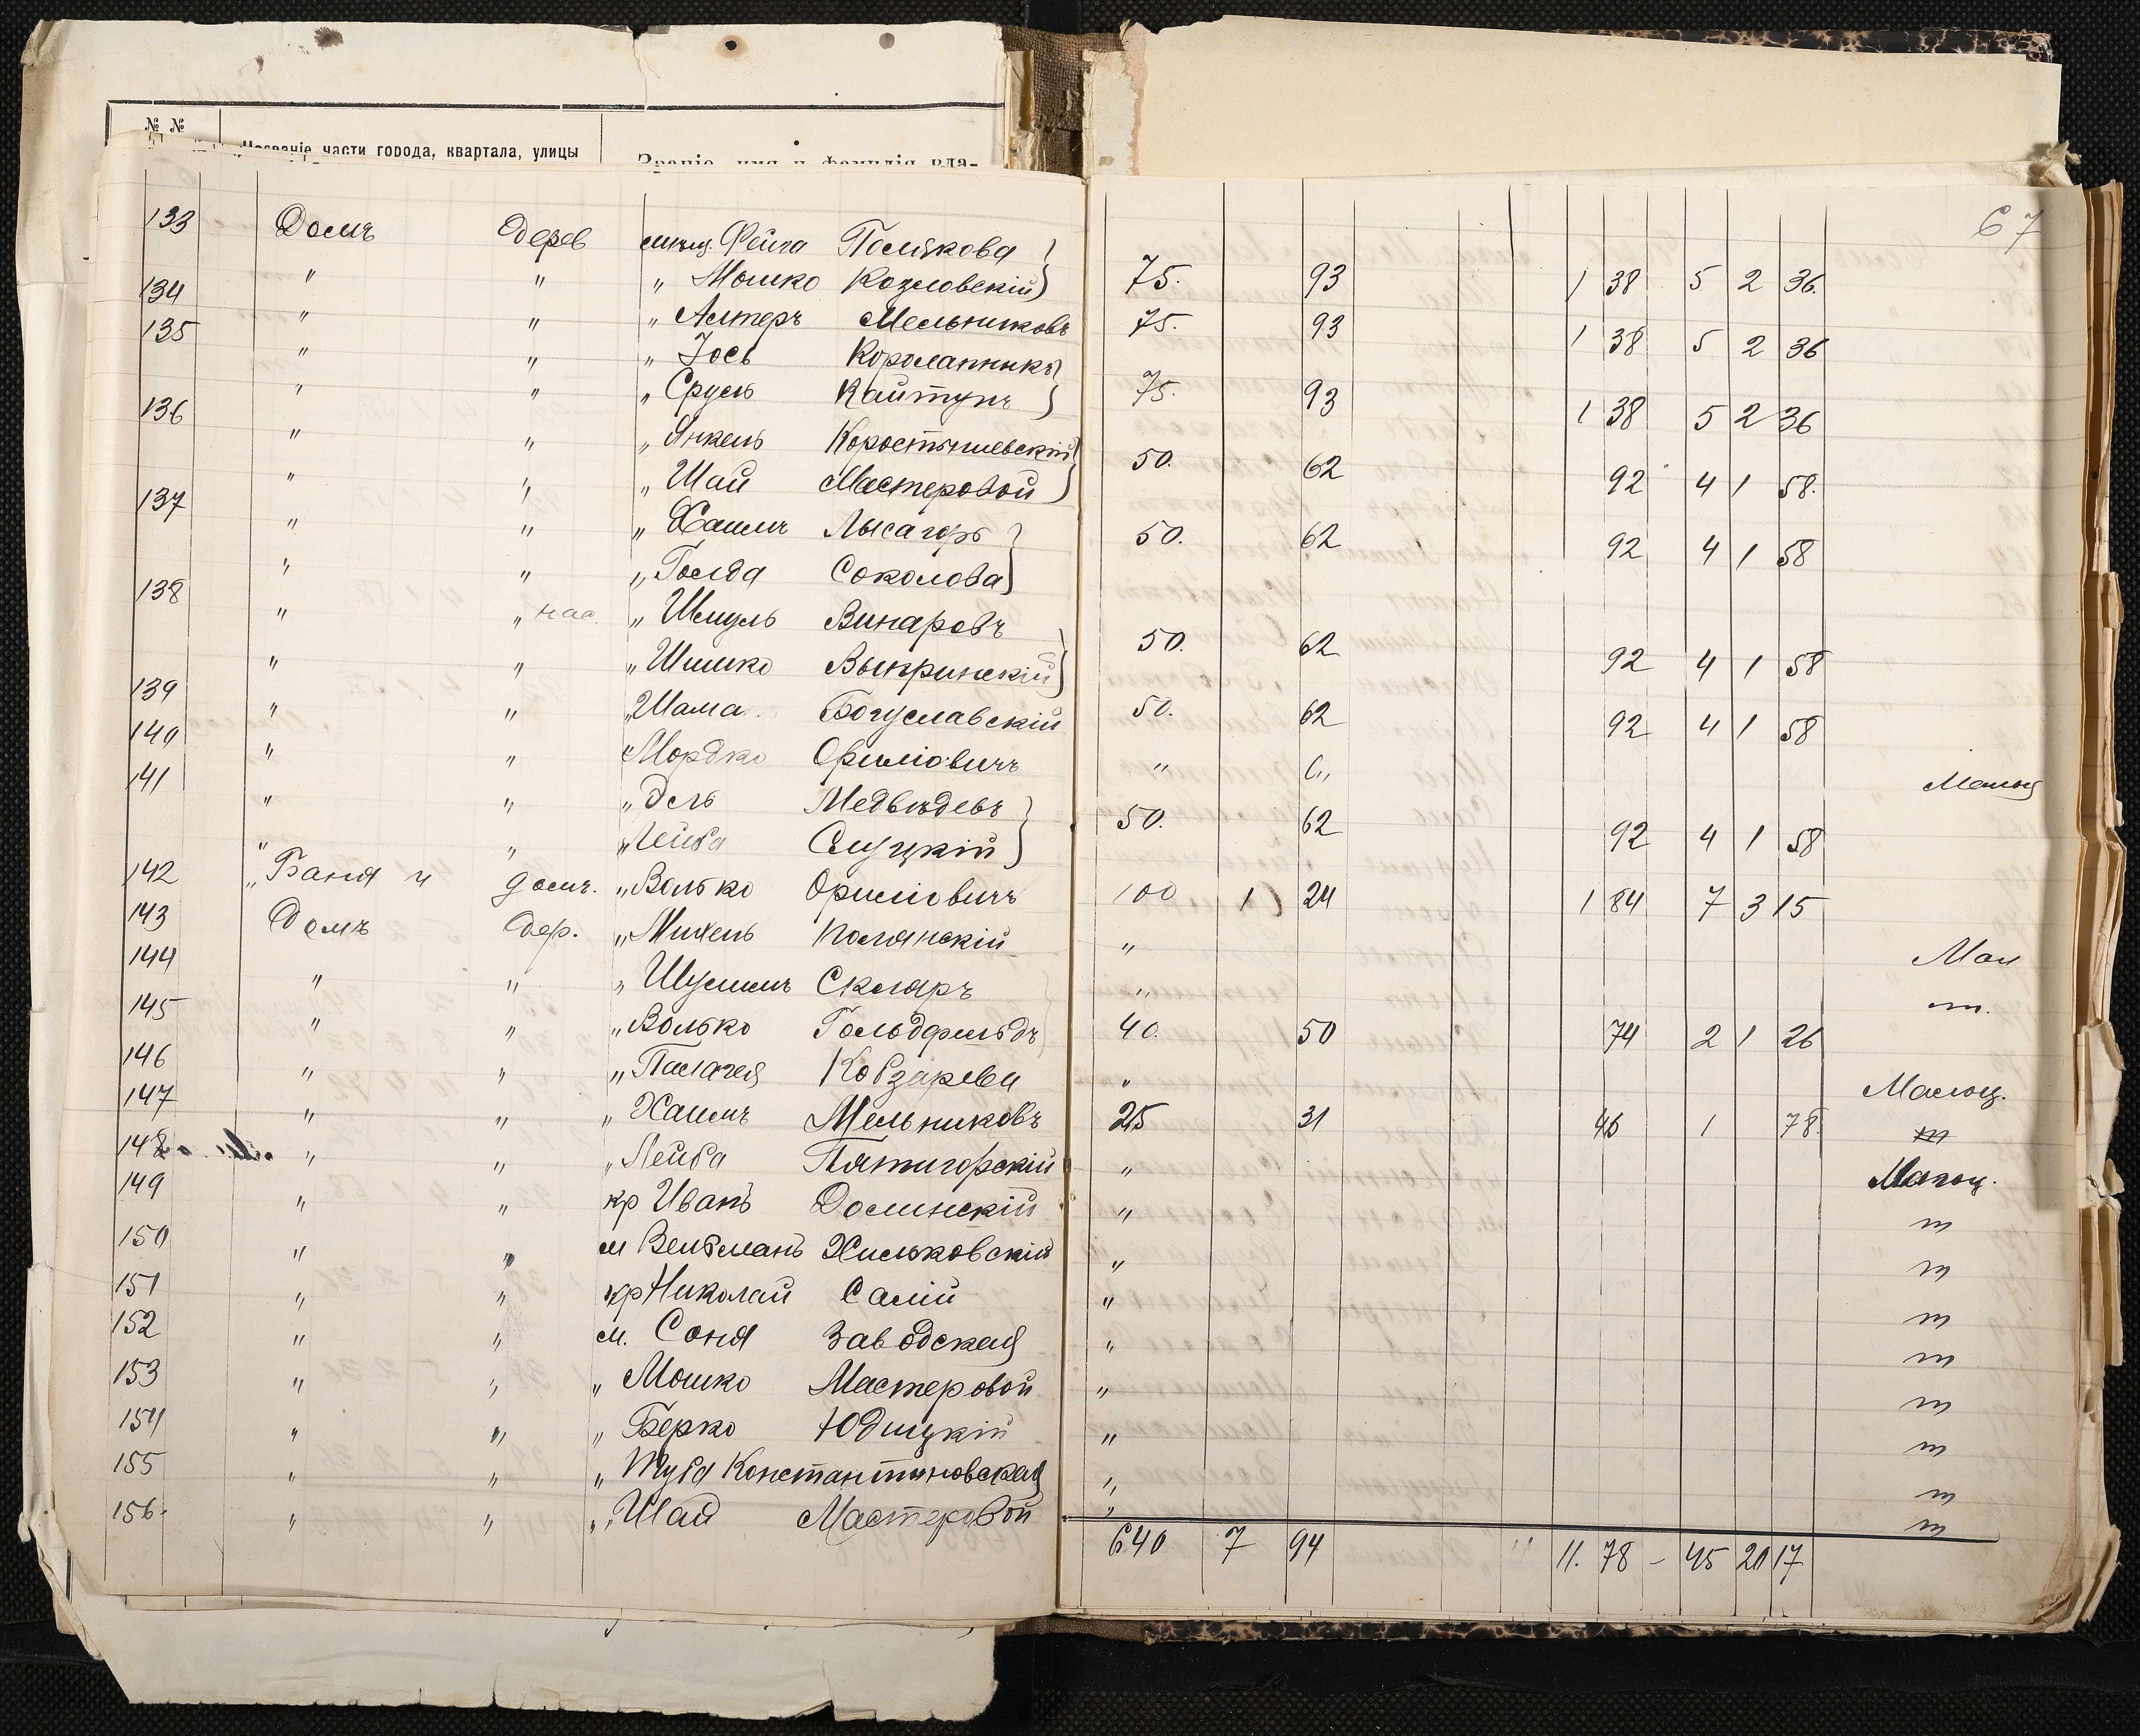 № №
Названіе части города, квартала, улицы
Званіе, имя и фамилія вла-
67
133 Домъ дерев мѣщ. Фейга Полякова
134 " " " Мошко Козловскій 75. 93 1 38 5 2 36.
135 " " " Алтеръ Мельниковъ 75. 93 1 38 5 2 36
" " " Іось
136 " " " Сруль Кайтунъ 75. 93 1 38 5 2 36
" " " Янкель Коростышевскій
137 " " " Шай Мастеровой 50. 62 92 4 1 58.
" " " Хаимъ Лысагоръ 50. 62 92 4 1 58
138 " " " Голда Соколова
" " нас. " Шмуль Винаровъ
" " " Шимко 50. 62 92 4 1 58
139 " " " Шама Богуславскій 50. 62 92 4 1 58
140 " " " Мордко " "
141 " " " Эль Медвѣдевъ Малоц
" " " Лейба Слуцкій 50. 62 92 4 1 58
142 " Баня и домъ. " Волько 100 1 24 1 84 7 3 15
143 Домъ дер. " Михель Полянскій " Мал
144 " " " Шулимъ Скляръ " m.
145 " " " Волько Гольдфельдъ 40. 50 74 2 1 26
146 " " " Палагея Кобзарева " Малоц.
147 " " " Хаимъ Мельниковъ 25 31 46 1 78. m
148 " " " Лейба Пятигорскій " Малоц.
149 " " кр Иванъ Долинскій " m
150 " " м Вельманъ Хильковскій " m
151 " " кр Николай Салій " m
152 " " м. Соня Заводская " m
153 " " " Мошко Мастеровой " m
154 " " " Берко Юдицкій " m
155 " " " Туба Константиновская " m
156. " " " Шая Мастеровой " m
640 7 94 " 11. 78 - 45 20 17